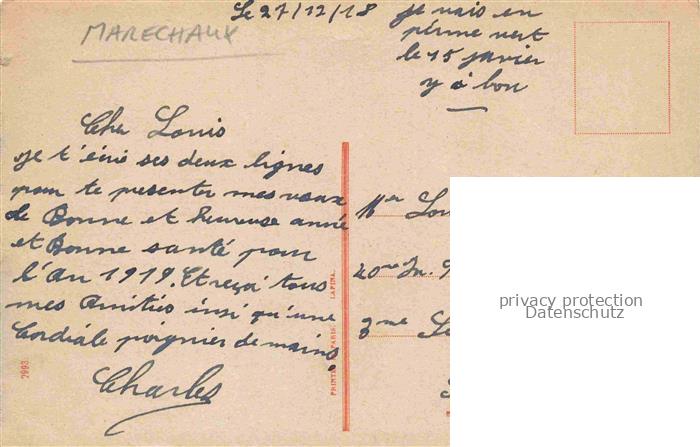 MARECHAUX
Le 27/12/18
je vais en
perme vert
le 15 janvier
y a bon
Cher Louis
je t'écris ses deux lignes
pour te presenter mes vœux
de Bonne et heureuse année
et Bonne santé pour
l'An 1919. Et reçoi tous
mes Amitiés insi qu'une
Cordiale poignier de mains.
Charles
Mer Lou
20me In.
3me Se
7993
PARIS. LAPINA.
privacy protection
Datenschutz